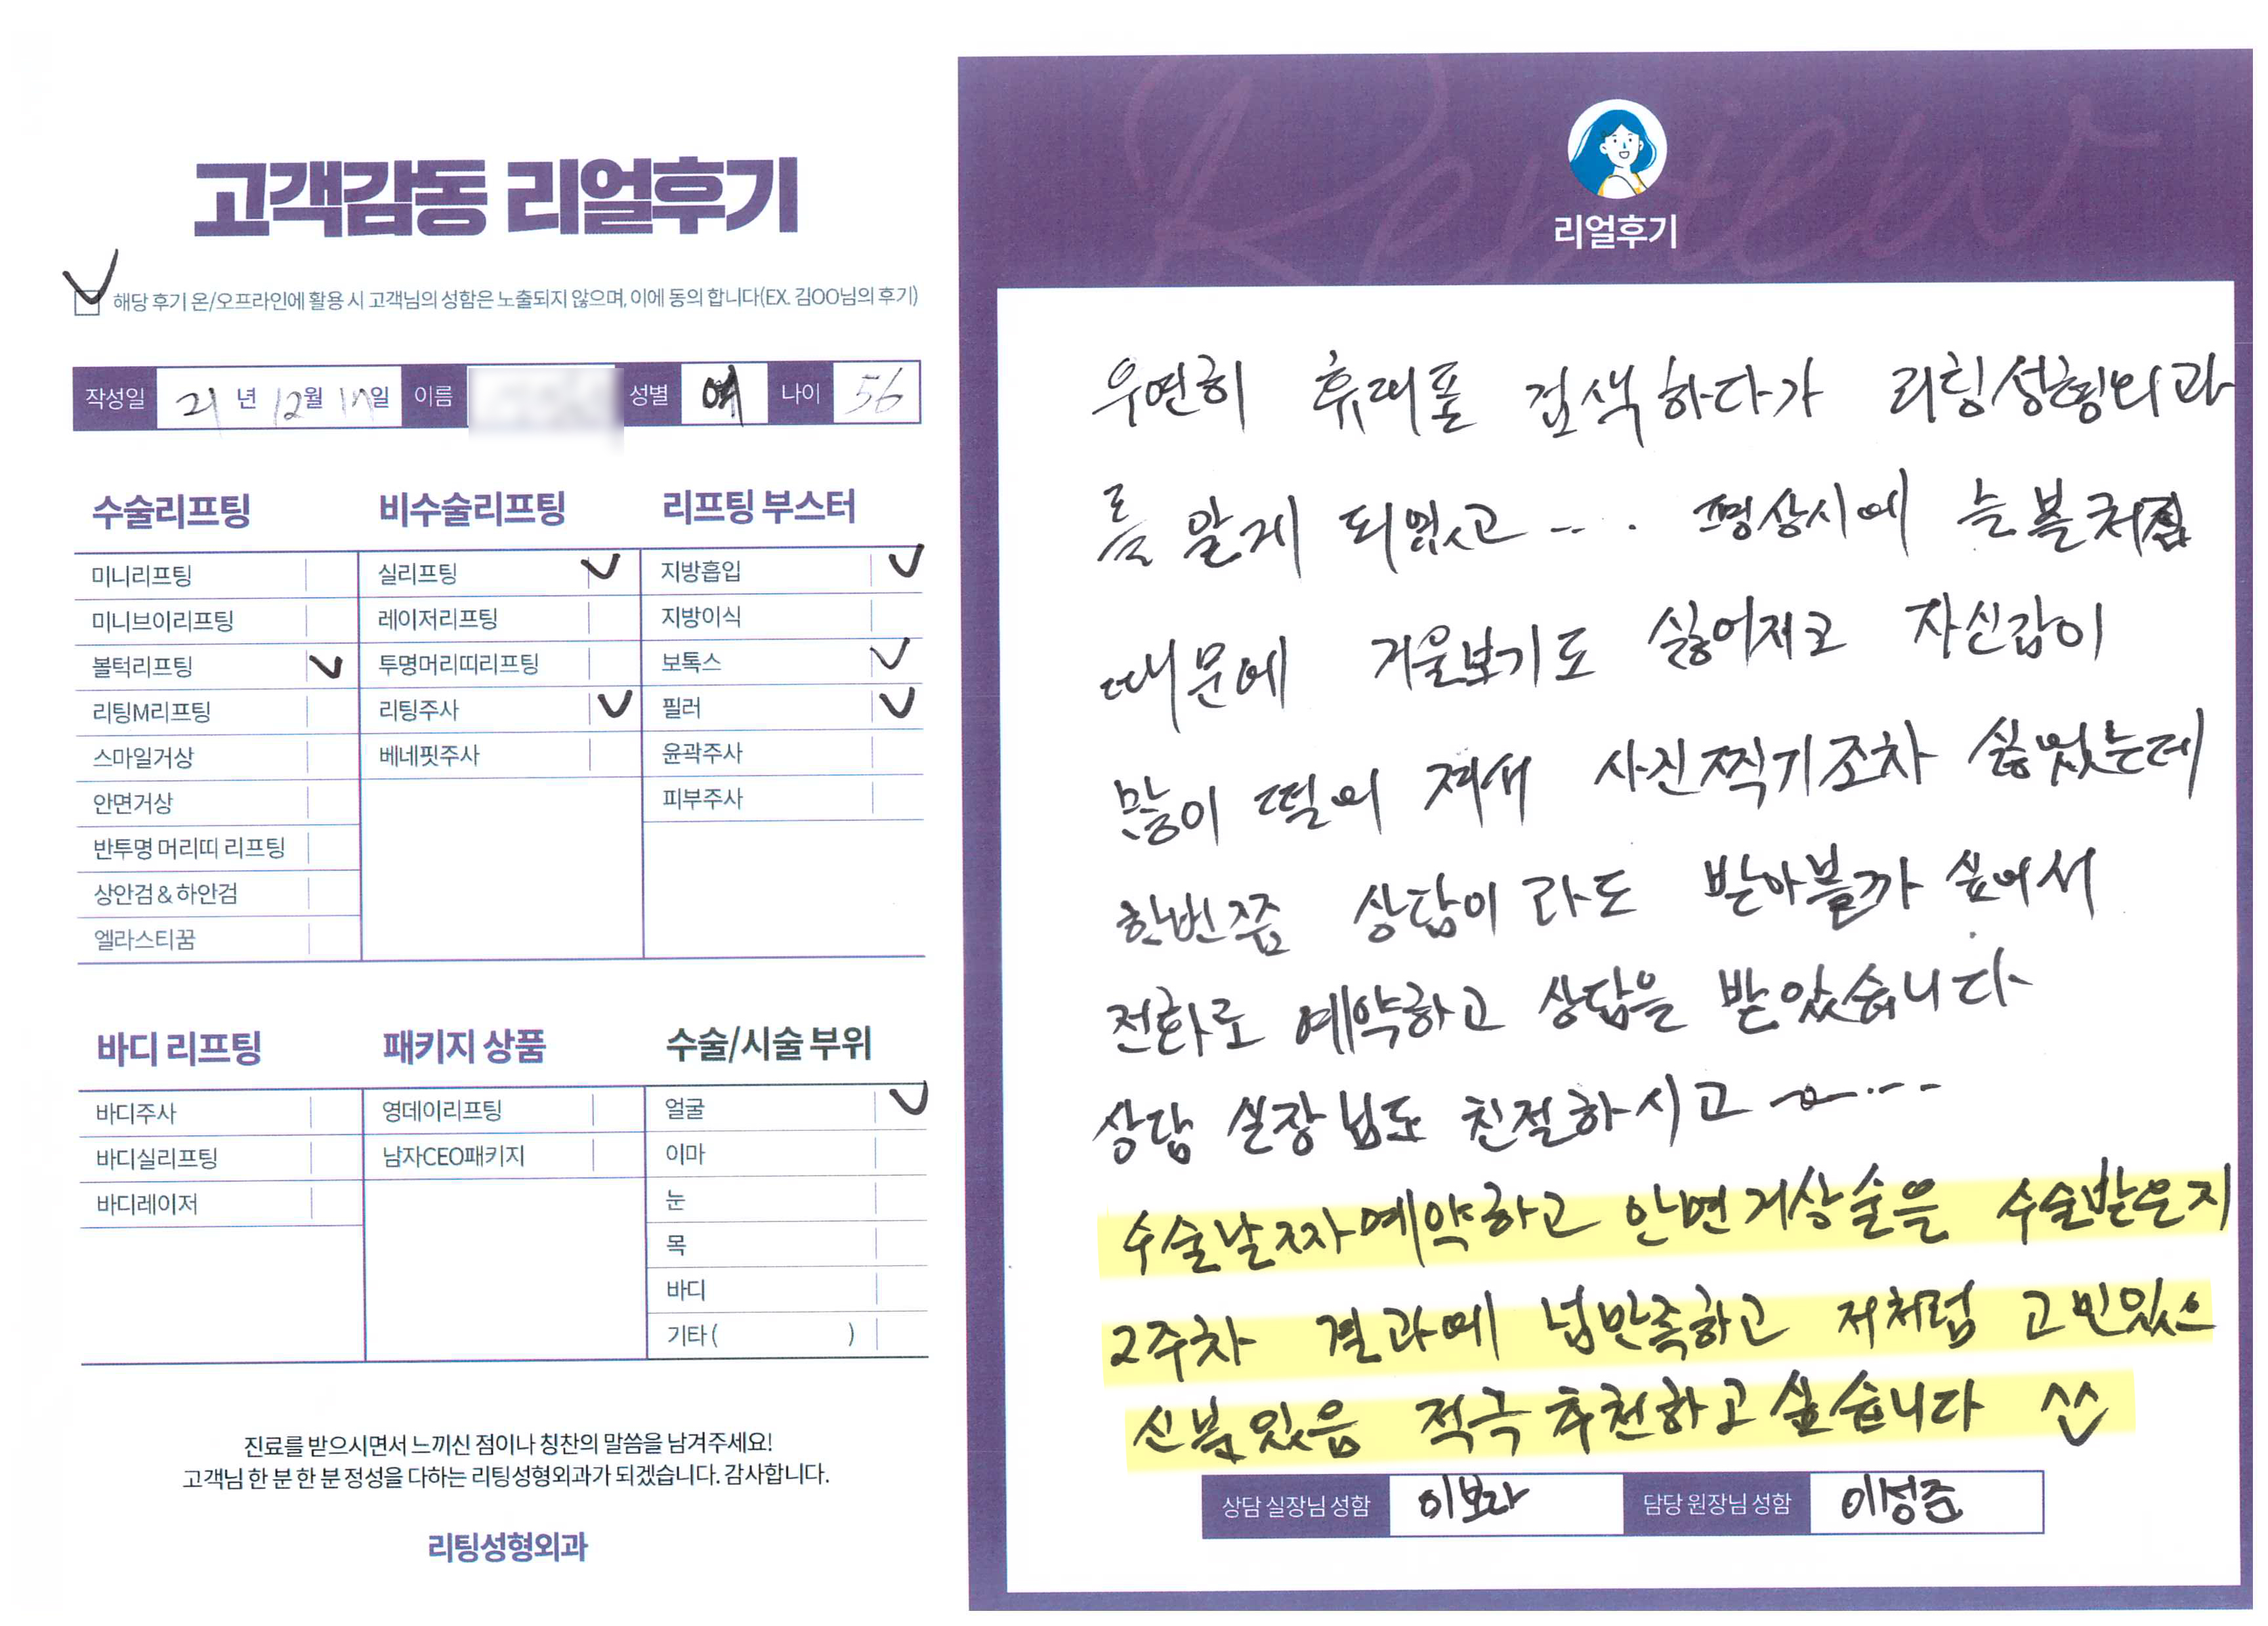 고객감동 리얼후기
해당 후기 온/오프라인에 활용 시 고객님의 성함은 노출되지 않으며, 이에 동의 합니다(EX. 김OO님의 후기)
작성일 21년 12월 17일 이름 성별 여 나이 56
수술리프팅
미니리프팅
미니브이리프팅
볼턱리프팅
리팅M리프팅
스마일거상
안면거상
반투명 머리띠 리프팅
상안검 & 하안검
엘라스티꿈
비수술리프팅
실리프팅
레이저리프팅
투명머리띠리프팅
리팅주사
베네핏주사
리프팅 부스터
지방흡입
지방이식
보톡스
필러
윤곽주사
피부주사
바디 리프팅
바디주사
바디실리프팅
바디레이저
패키지 상품
영데이리프팅
남자CEO패키지
수술/시술 부위
얼굴
이마
눈
목
바디
기타 ( )
진료를 받으시면서 느끼신 점이나 칭찬의 말씀을 남겨주세요!
고객님 한 분 한 분 정성을 다하는 리팅성형외과가 되겠습니다. 감사합니다.
리팅성형외과
Review
리얼후기
우연히 휴대폴 검색하다가 리팅성형외과
를 알게 되었고 .... 평상시에 늘볼처짐
때문에 거울보기도 싫어지고 자신감이
많이 떨어져서 사진찍기조차 싫었는데
한번쯤 상담이라도 받아볼까 싶어서
전화로 예약하고 상담을 받았습니다
상담 실장님도 친절하시고 ~~....
수술날짜예약하고 안면거상술을 수술받은지
2주차 결과에 넘만족하고 저처럼 고민있으
신분있음 적극추천하고싶습니다 ^^
상담 실장님 성함 이보라 담당 원장님 성함 이성준